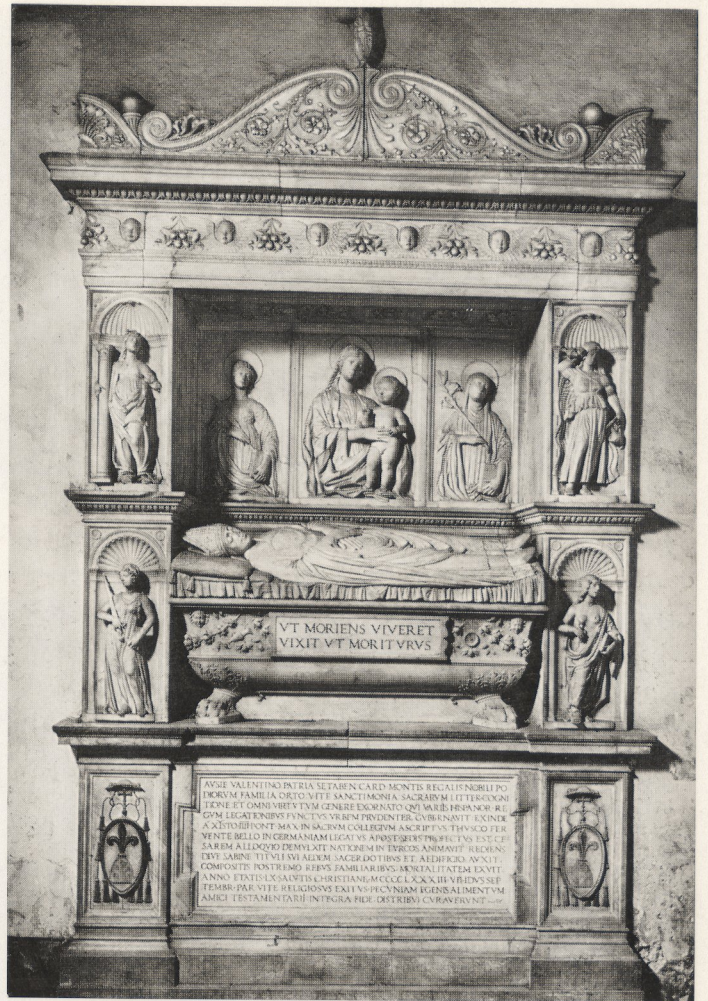 VT MORIENS VIVERET
VIXIT VT MORITVRVS
AVSIE VALENTINO PATRIA SETABEN CARD MONTIS REGALIS NOBILI PO
DIORVM FAMILIA ORTO VITE SANCTIMONIA SACRARVM LITTER COGNI
TIONE ET OMNI VIRTVTVM GENERE EXORNATO QVI VARIIS HISPANOR RE
GVM LEGATIONIBVS FVNCTVS VRBEM PRVDENTER GVBERNAVIT EXINDE
A XISTO IIII PONT MAX IN SACRVM COLLEGIVM ASCRIPTVS THVSCO FER
VENTE BELLO IN GERMANIAM LEGATVS APOST SEDIS PROFECTVS EST CE
SAREM ALLOQVIO DEMVLXIT NATIONEM IN TVRCOS ANIMAVIT REDIENS
DIVE SABINE TITVLI SVI AEDEM SACERDOTIBVS ET AEDIFICIO AVXIT
COMPOSITIS POSTREMO REBVS FAMILIARIBVS MORTALITATEM EXVIT
ANNO ETATIS LX SALVTIS CHRISTIANE MCCCCLXXXIII IDVS SEP
TEMBR PAR VITE RELIGIOSVS EXITVS PECVNIAM EGENIS ALIMENTVM
AMICI TESTAMENTARII INTEGRA FIDE DISTRIBVI CVRAVERVNT